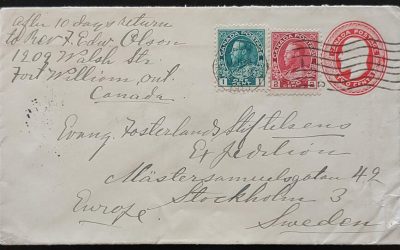 after 10 days return
to Rev F. Edw Olson
1209 Walsh Str.
Fort William, Ont.
Canada
CANADA POSTAGE
1 1
CANADA POSTAGE
2 2
CANADA POSTAGE
TWO CENTS
Evang. Fosterlands Stiftelsens
Expedition
Mästersamuelsgatan 42
Stockholm 3
Sweden
Europe